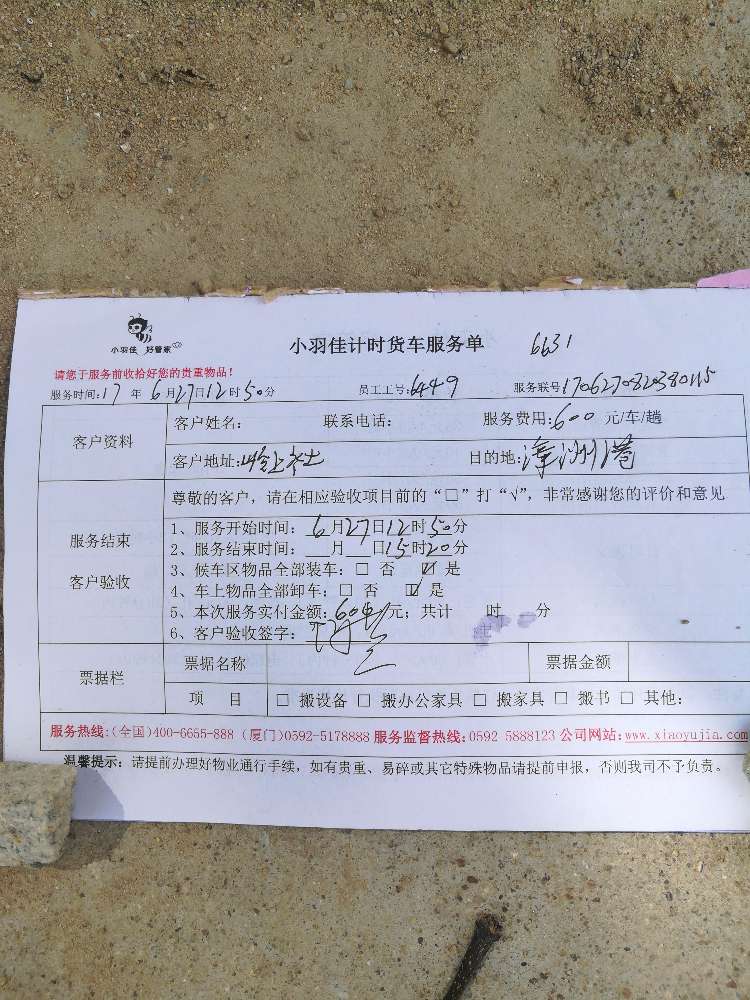 小羽佳 好管家
小羽佳计时货车服务单 6631
请您于服务前收拾好您的贵重物品!
服务时间:17 年 6月27日12时50分 员工工号:6449 服务联号
客户资料
客户姓名: 联系电话: 服务费用:600 元/车/趟
客户地址:岭上 目的地:漳州港
服务结束
客户验收
尊敬的客户,请在相应验收项目前的“□”打“√”,非常感谢您的评价和意见
1、服务开始时间: 6月27日12时50分
2、服务结束时间: 月 日15时20分
3、候车区物品全部装车: □ 否 ☑ 是
4、车上物品全部卸车: □ 否 ☑ 是
5、本次服务实付金额: 600元; 共计 时 分
6、客户验收签字:
票据栏
票据名称 票据金额
项 目 □ 搬设备 □ 搬办公家具 □ 搬家具 □ 搬书 □ 其他:
服务热线:(全国)400-6655-888 (厦门)0592-5178888 服务监督热线:0592 5888123 公司网站:www.xiaoyujia.com
温馨提示: 请提前办理好物业通行手续, 如有贵重、易碎或其它特殊物品请提前申报, 否则我司不予负责。